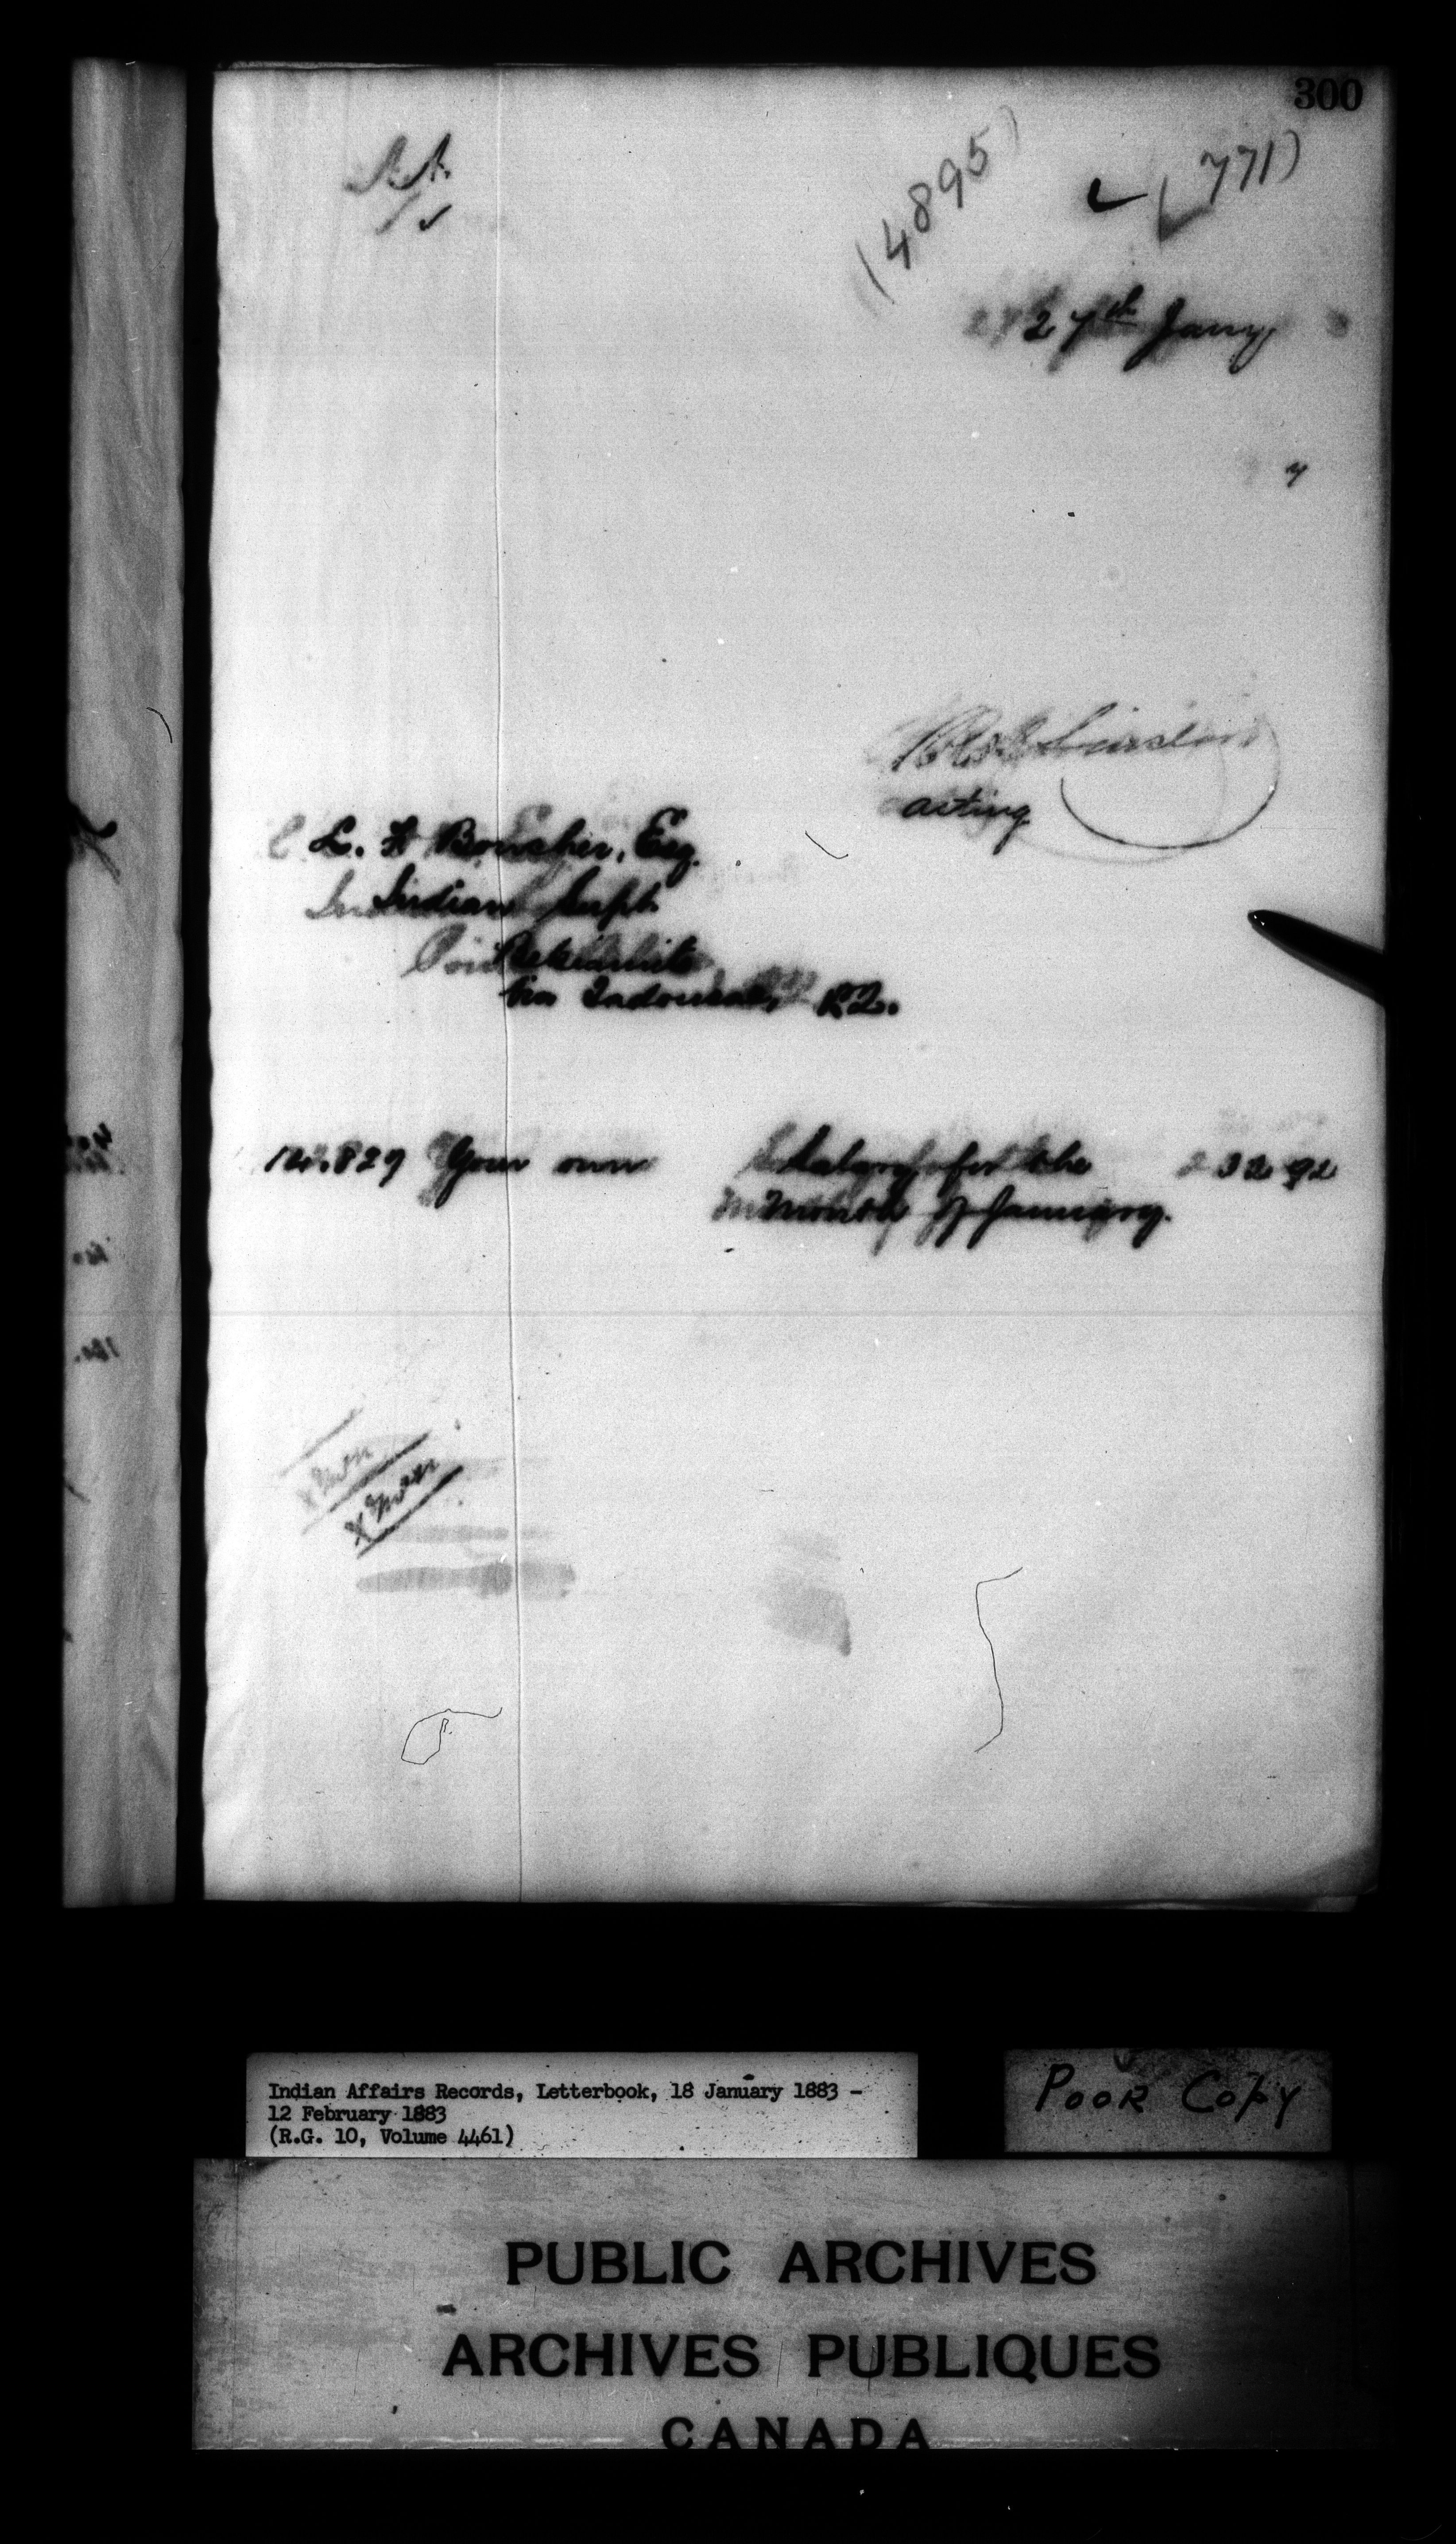 300
(4895)
(771)
27th Jany
acting
L. F. Boucher, Esq.
Indian Supt.
Betsiamits
via Tadousac, P.Q.
No. 829 Your own Salary for the 32 92
month of January.
Indian Affairs Records, Letterbook, 18 January 1883 -
12 February 1883
(R.G. 10, Volume 4461)
POOR COPY
PUBLIC ARCHIVES
ARCHIVES PUBLIQUES
CANADA